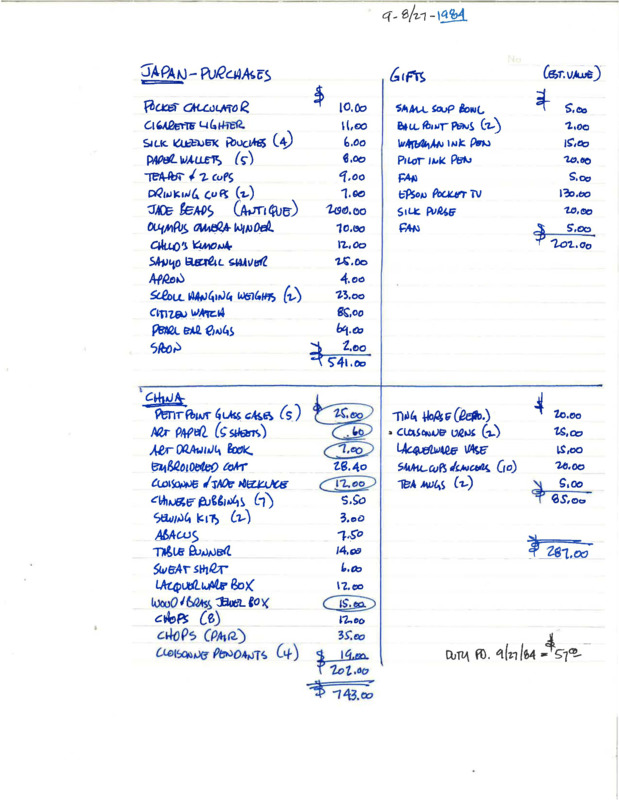 9-8/27-1984
No
JAPAN-PURCHASES
$
POCKET CALCULATOR 10.00
CIGARETTE LIGHTER 11.00
SILK KLEENEX POUCHES (4) 6.00
PAPER WALLETS (5) 8.00
TEAPOT & 2 CUPS 9.00
DRINKING CUPS (2) 7.00
JADE BEADS (ANTIQUE) 200.00
OLYMPUS CAMERA WINDER 70.00
CHILD'S KIMONA 12.00
SANYO ELECTRIC SHAVER 25.00
APRON 4.00
SCROLL HANGING WEIGHTS (2) 23.00
CITIZEN WATCH 85.00
PEARL EAR RINGS 69.00
SPOON 2.00
$ 541.00
GIFTS (EST. VALUE)
$
SMALL SOUP BOWL 5.00
BALL POINT PENS (2) 2.00
WATERMAN INK PEN 15.00
PILOT INK PEN 20.00
FAN 5.00
EPSON POCKET TV 130.00
SILK PURSE 20.00
FAN $ 5.00
$ 202.00
CHINA
$
PETIT POINT GLASS CASES (5) 25.00
ART PAPER (5 SHEETS) .60
ART DRAWING BOOK 2.00
EMBROIDERED COAT 28.40
CLOISONNE & JADE NECKLACE 12.00
CHINESE RUBBINGS (7) 5.50
SEWING KITS (2) 3.00
ABACUS 7.50
TABLE RUNNER 14.00
SWEAT SHIRT 6.00
LACQUERWARE BOX 12.00
WOOD & BRASS JEWEL BOX 15.00
CHOPS (8) 12.00
CHOPS (PAIR) 35.00
CLOISONNE PENDANTS (4) $ 19.00
$ 202.00
$ 743.00
$
TING HORSE (REPO.) 20.00
CLOISONNE URNS (2) 25.00
LACQUERWARE VASE 15.00
SMALL CUPS & SAUCERS (10) 20.00
TEA MUGS (2) $ 5.00
$ 85.00
$ 287.00
DUTY PD. 9/27/84 = $57.00